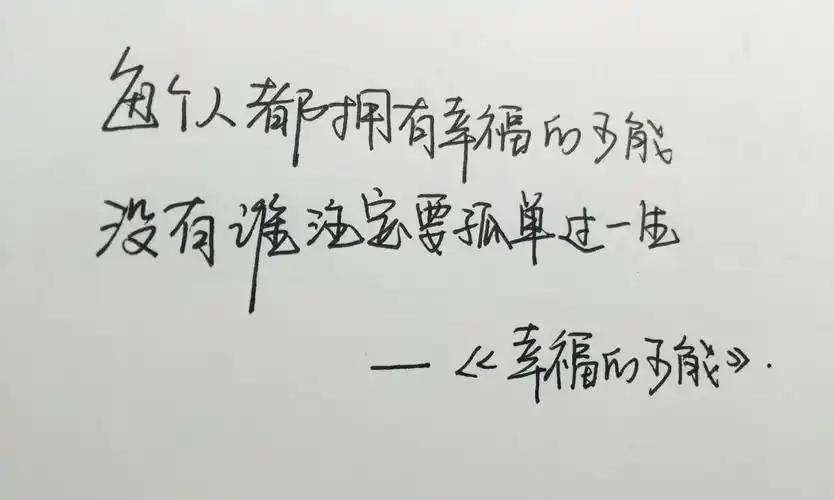 每个人都拥有幸福的可能
没有谁注定要孤单过一生
—《幸福的可能》.